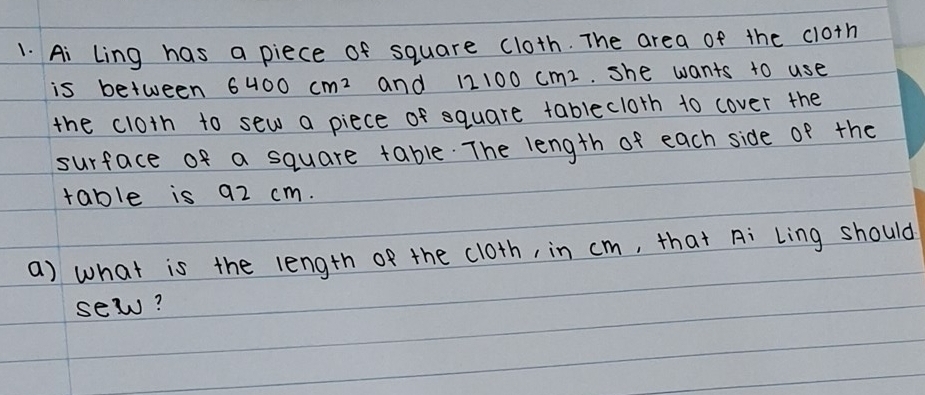 1. Ai Ling has a piece of square cloth. The area of the cloth
is between 6400 cm² and 12100 cm². She wants to use
the cloth to sew a piece of square tablecloth to cover the
surface of a square table. The length of each side of the
table is 92 cm.
a) what is the length of the cloth, in cm, that Ai Ling should
sew?